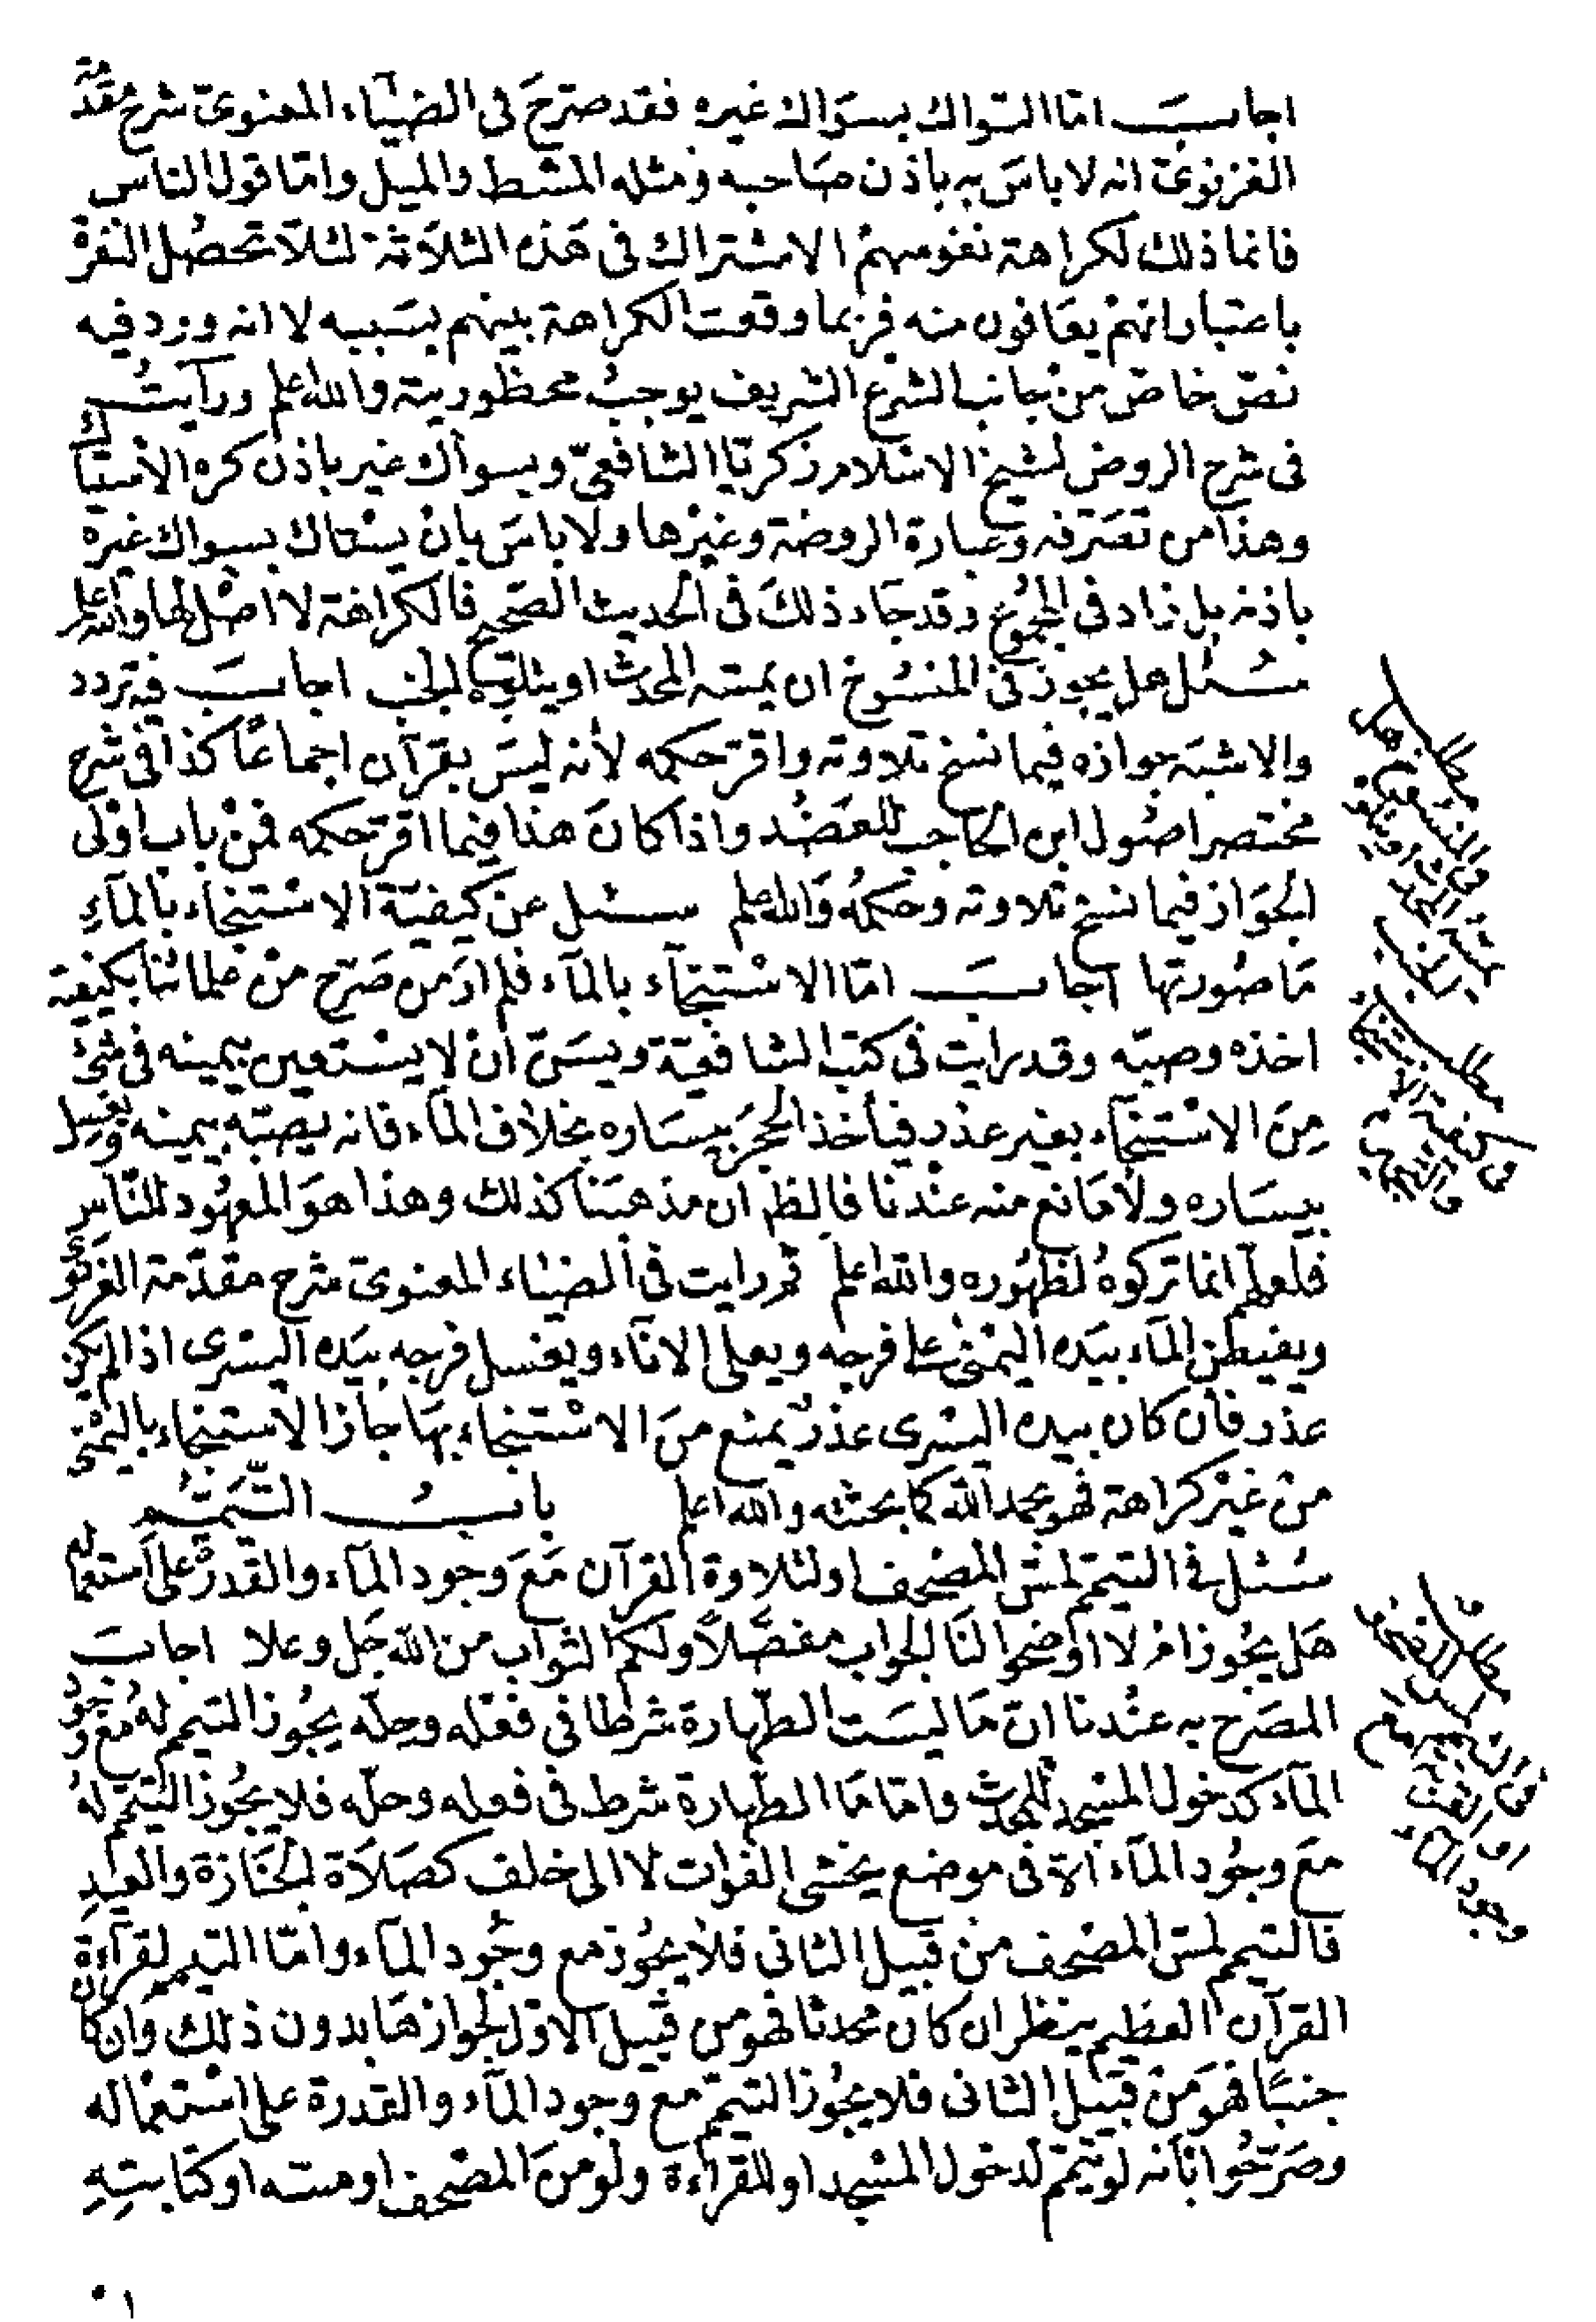 اجاب اما التسواك بسواك غيره فقد صرح في الضياء المعنوي شرح مقدمة
الغزنوي انه لا باس به باذن صاحبه ومثله المشط والميل واما قول الناس
فانما ذلك لكراهة نفوسهم الاشتراك في هذه الثلاثة لئلا تحصل النفرة
باعتبار انهم يعافون منه فربما وقعت الكراهة بينهم بسببه لا انه ورد فيه
نص خاص من جانب الشرع الشريف يوجب محظوريته والله اعلم ورايت
في شرح الروض لشيخ الاسلام زكريا الشافعي وبسواك غير باذن كره الاستياك
وهذا من تصرفه وعبارة الروضة وغيرها ولا باس بان يستاك بسواك غيره
باذنه بل زاد في المجموع وقد جاء ذلك في الحديث الصحيح فالكراهة لا اصل لها والله اعلم
سئل هل يجوز في المنسوخ ان يمسه المحدث او يتلوه الجنب اجاب فيه تردد
والاشبه جوازه فيما نسخ تلاوته واقر حكمه لانه ليس بقرآن اجماعا كذا في شرح
مختصر اصول ابن الحاجب للعضد واذا كان هذا فيما اقر حكمه فمن باب اولى
الجواز فيما نسخ تلاوته وحكمه والله اعلم سئل عن كيفية الاستنجاء بالماء
ما صورتها اجاب اما الاستنجاء بالماء فلم ار من صرح من علمائنا بكيفية
اخذه وصبه وقد رايت في كتب الشافعية ويسن ان لا يستعين بيمينه في شئ
من الاستنجاء بغير عذر فياخذ الحجر بيساره بخلاف الماء فانه يصبه بيمينه ويغسل
بيساره ولا مانع منه عندنا فالظ ان مذهبنا كذلك وهذا هو المعهود للناس
فلعلهم انما تركوه لظهوره والله اعلم ثم رايت في الضياء المعنوي شرح مقدمة الغزنوي
ويفيض الماء بيده اليمنى على فرجه ويعلى الاناء ويغسل فرجه بيده اليسرى اذا لم يكن
عذر فان كان بيده اليسرى عذر يمنع من الاستنجاء بها جاز الاستنجاء باليمنى
من غير كراهة فهو بحمد الله كما بحثته والله اعلم باب التيمم
سئل في التيمم لمس المصحف او لتلاوة القرآن مع وجود الماء والقدرة على استعماله
هل يجوز ام لا اوضحوا لنا الجواب مفصلا ولكم الثواب من الله جل وعلا اجاب
المصرح به عندنا ان ما ليست الطهارة شرطا في فعله وحله يجوز التيمم له مع وجود
الماء كدخول المسجد للمحدث واما ما الطهارة شرط في فعله وحله فلا يجوز التيمم له
مع وجود الماء الا في موضع يخشى الفوات لا الى خلف كصلاة الجنازة والعيد
فالتيمم لمس المصحف من قبيل الثاني فلا يجوز مع وجود الماء واما التيمم لقراءة
القرآن العظيم ينظر ان كان محدثا فهو من قبيل الاول لجوازها بدون ذلك وان كان
جنبا فهو من قبيل الثاني فلا يجوز التيمم مع وجود الماء والقدرة على استعماله
وصرحوا بانه لو تيمم لدخول المسجد او للقراءة ولو من المصحف او مسه او كتابته
مطلب هل
يجوز في المنسوخ
ان يمسه المحدث او يتلوه
الجنب
مطلب
في كيفية الاستنجاء
مطلب
في التيمم لمس المصحف
او القرآن مع
وجود الماء
١٠